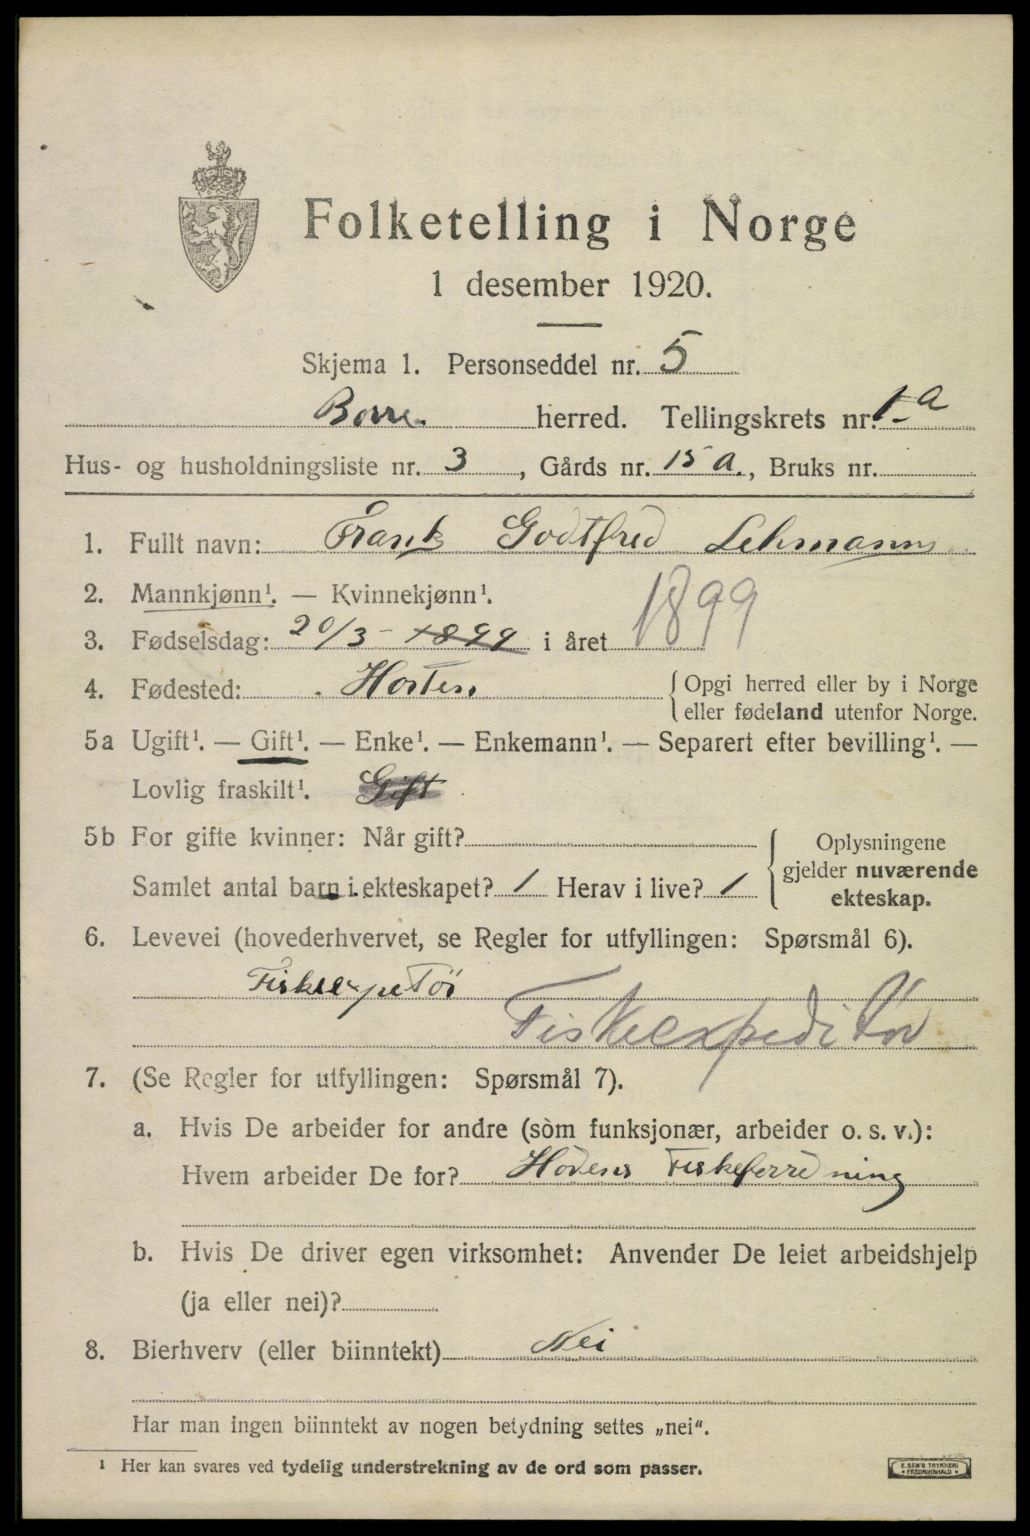 Folketelling i Norge
1 desember 1920.
Skjema 1. Personseddel nr. 5
Borre herred. Tellingskrets nr. 1 a
Hus- og husholdningsliste nr. 3, Gårds nr. 15 a., Bruks nr.
1. Fullt navn: Frank Godtfred Lehmann
2. Mannkjønn¹. — Kvinnekjønn¹.
3. Fødselsdag: 20/3 - 1899 i året 1899
4. Fødested: Horten
Opgi herred eller by i Norge
eller fødeland utenfor Norge.
5a Ugift¹. — Gift¹. — Enke¹. — Enkemann¹. — Separert efter bevilling¹. —
Lovlig fraskilt¹. Gift
5b For gifte kvinner: Når gift?
Samlet antal barn i ekteskapet? 1 Herav i live? 1
Oplysningene
gjelder nuværende
ekteskap.
6. Levevei (hovederhvervet, se Regler for utfyllingen: Spørsmål 6).
Fiskeexpetør
Fiskeexpeditør
7. (Se Regler for utfyllingen: Spørsmål 7).
a. Hvis De arbeider for andre (som funksjonær, arbeider o. s. v.):
Hvem arbeider De for? Fiskeforredning
b. Hvis De driver egen virksomhet: Anvender De leiet arbeidshjelp
(ja eller nei)?
8. Bierhverv (eller biinntekt) Nei
Har man ingen biinntekt av nogen betydning settes „nei“.
¹ Her kan svares ved tydelig understrekning av de ord som passer.
E. SEM'S TRYKKERI
FREDRIKSHALD